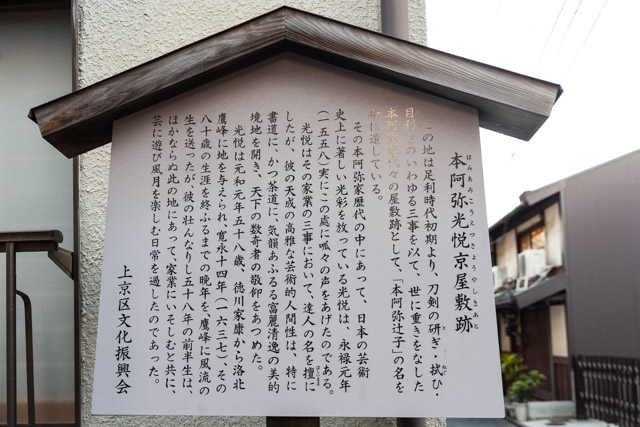 本阿弥光悦京屋敷跡
ほんあみこうえつきょうやしきあと
この地は足利時代初期より、刀剣の研ぎ・拭ひ・
目利きのいわゆる三事を以て、世に重きをなした
本阿弥家代々の屋敷跡として、「本阿弥辻子」の名を
今に遺している。
その本阿弥家歴代の中にあって、日本の芸術
史上に著しい光彩を放っている光悦は、永禄元年
(一五五八)実にこの処に呱々の声をあげたのである。
光悦はその家業の三事において、達人の名を擅に
したが、彼の天成の高雅な芸術的人間性は、特に
書道に、かつ茶道に、気韻あふるる富麗清逸の美的
境地を開き、天下の数奇者の敬仰をあつめた。
光悦は元和元年五十八歳、徳川家康から洛北
鷹峰に地を与えられ、寛永十四年(一六三七)その
八十歳の生涯を終ふるまでの晩年を、鷹峰に風流の
生を送ったが、彼の壮んなりし五十八年の前半生は、
ほかならぬ此の地にあって、家業にいそしむと共に、
芸に遊び風月を楽しむ日常を過したのであった。
上京区文化振興会